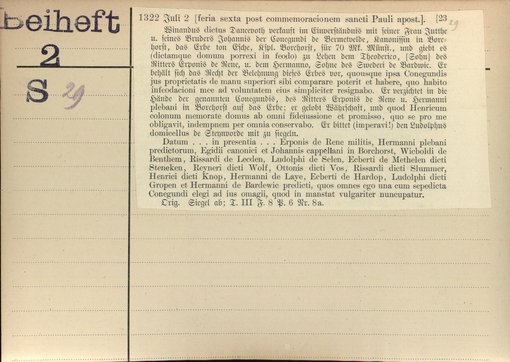 Beiheft
2
S 29
1322 Juli 2 [feria sexta post commemoracionem sancti Pauli apost.]. [23
29
Winandus dictus Dancvoth verkauft im Einverständnis mit seiner Frau Jutthe
u. seines Bruders Johannis der Conegundi de Vermetvelde, Kanonissin in Borc-
horst, das Erbe ton Esche, Kspl. Borchorst, für 70 Mk. Münst., und giebt es
(dictamque domum porrexi in feodo) zu Lehen dem Theoderico, [Sohn] des
Ritters Erponis de Rene, u. dem Hermanno, Sohne des Swederi de Bardwic. Er
behält sich das Recht der Belehnung dieses Erbes vor, quousque ipsa Conegundis
jus proprietatis de manu superiori sibi comparare poterit et habere, quo habito
infeodacioni mee ad voluntatem eius simpliciter resignabo. Er verzichtet in die
Hände der genannten Conegundis, des Ritters Erponis de Rene u. Hermanni
plebani in Borchorst auf das Erbe; er gelobt Währschaft, und quod Henricum
colonum memorate domus ab omni fideiussione et promisso, quo se pro me
obligavit, indempnem per omnia conservabo. Er bittet (imperavi!) den Ludolphus
domicellus de Stenvorde mit zu siegeln.
Datum . . . in presentia . . . Erponis de Rene militis, Hermanni plebani
predictorum, Egidii canonici et Johannis cappellani in Borchorst, Wicboldi de
Benthem, Rissardi de Lecden, Ludolphi de Selen, Ecberti de Methelen dicti
Steneken, Reyneri dicti Wolf, Ottonis dicti Vos, Rissardi dicti Slummer,
Henrici dicti Knop, Hermanni de Laye, Ecberti de Hardop, Ludolphi dicti
Gropen et Hermanni de Bardewic predicti, quos omnes ego una cum sepedicta
Conegundi elegi ad ius omagii, quod in manstat vulgariter nuncupatur.
Orig. Siegel ab; T. III F. 8 P. 6 Nr. 8a.